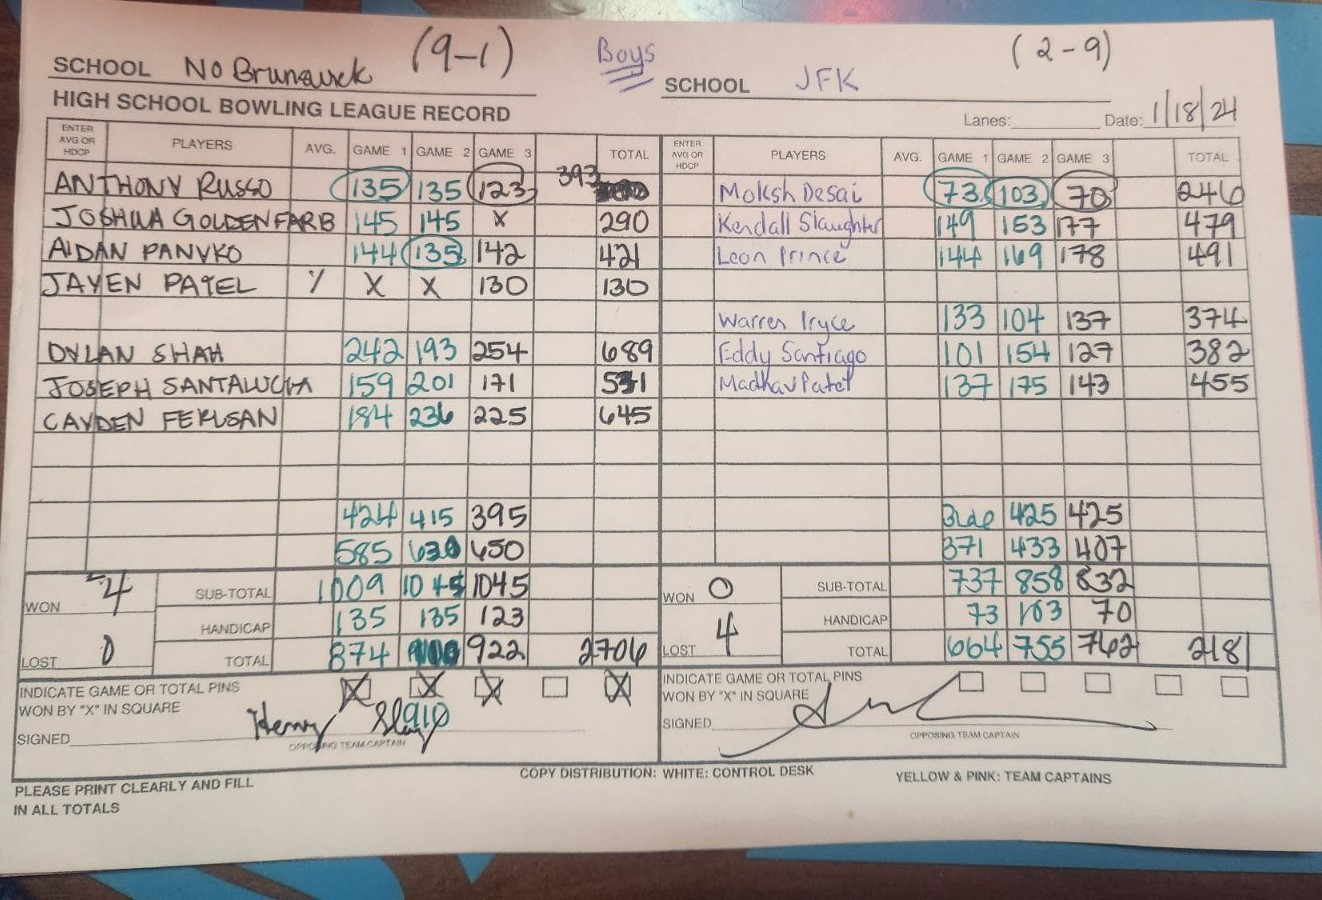 SCHOOL No Brunswick (9-1) Boys SCHOOL JFK (2-9)
HIGH SCHOOL BOWLING LEAGUE RECORD Lanes: Date: 1/18/24
ENTER AVG OR HDCP PLAYERS AVG. GAME 1 GAME 2 GAME 3 TOTAL ENTER AVG OR HDCP PLAYERS AVG. GAME 1 GAME 2 GAME 3 TOTAL
ANTHONY RUSSO 135 135 123 393 Moksh Desai 73 103 70 246
JOSHUA GOLDENFARB 145 145 X 290 Kendall Slaughter 149 153 177 479
AIDAN PANVKO 144 135 142 421 Leon Prince 144 169 178 491
JAYEN PATEL X X 130 130
Warren Pryce 133 104 137 374
DYLAN SHAH 242 193 254 689 Eddy Santiago 101 154 127 382
JOSEPH SANTALUCIA 159 201 171 531 Madhav Patel 137 175 143 455
CAYDEN FERUSAN 184 236 225 645
424 415 395 425 425
585 630 650 371 433 407
WON 4 SUB-TOTAL 1009 1045 1045 WON 0 SUB-TOTAL 737 858 832
HANDICAP 135 135 123 HANDICAP 73 103 70
LOST 0 TOTAL 874 922 2706 LOST 4 TOTAL 664 755 762 2181
INDICATE GAME OR TOTAL PINS X X X X INDICATE GAME OR TOTAL PINS
WON BY "X" IN SQUARE WON BY "X" IN SQUARE
SIGNED Henry 910 SIGNED
OPPOSING TEAM CAPTAIN OPPOSING TEAM CAPTAIN
PLEASE PRINT CLEARLY AND FILL COPY DISTRIBUTION: WHITE: CONTROL DESK YELLOW & PINK: TEAM CAPTAINS
IN ALL TOTALS